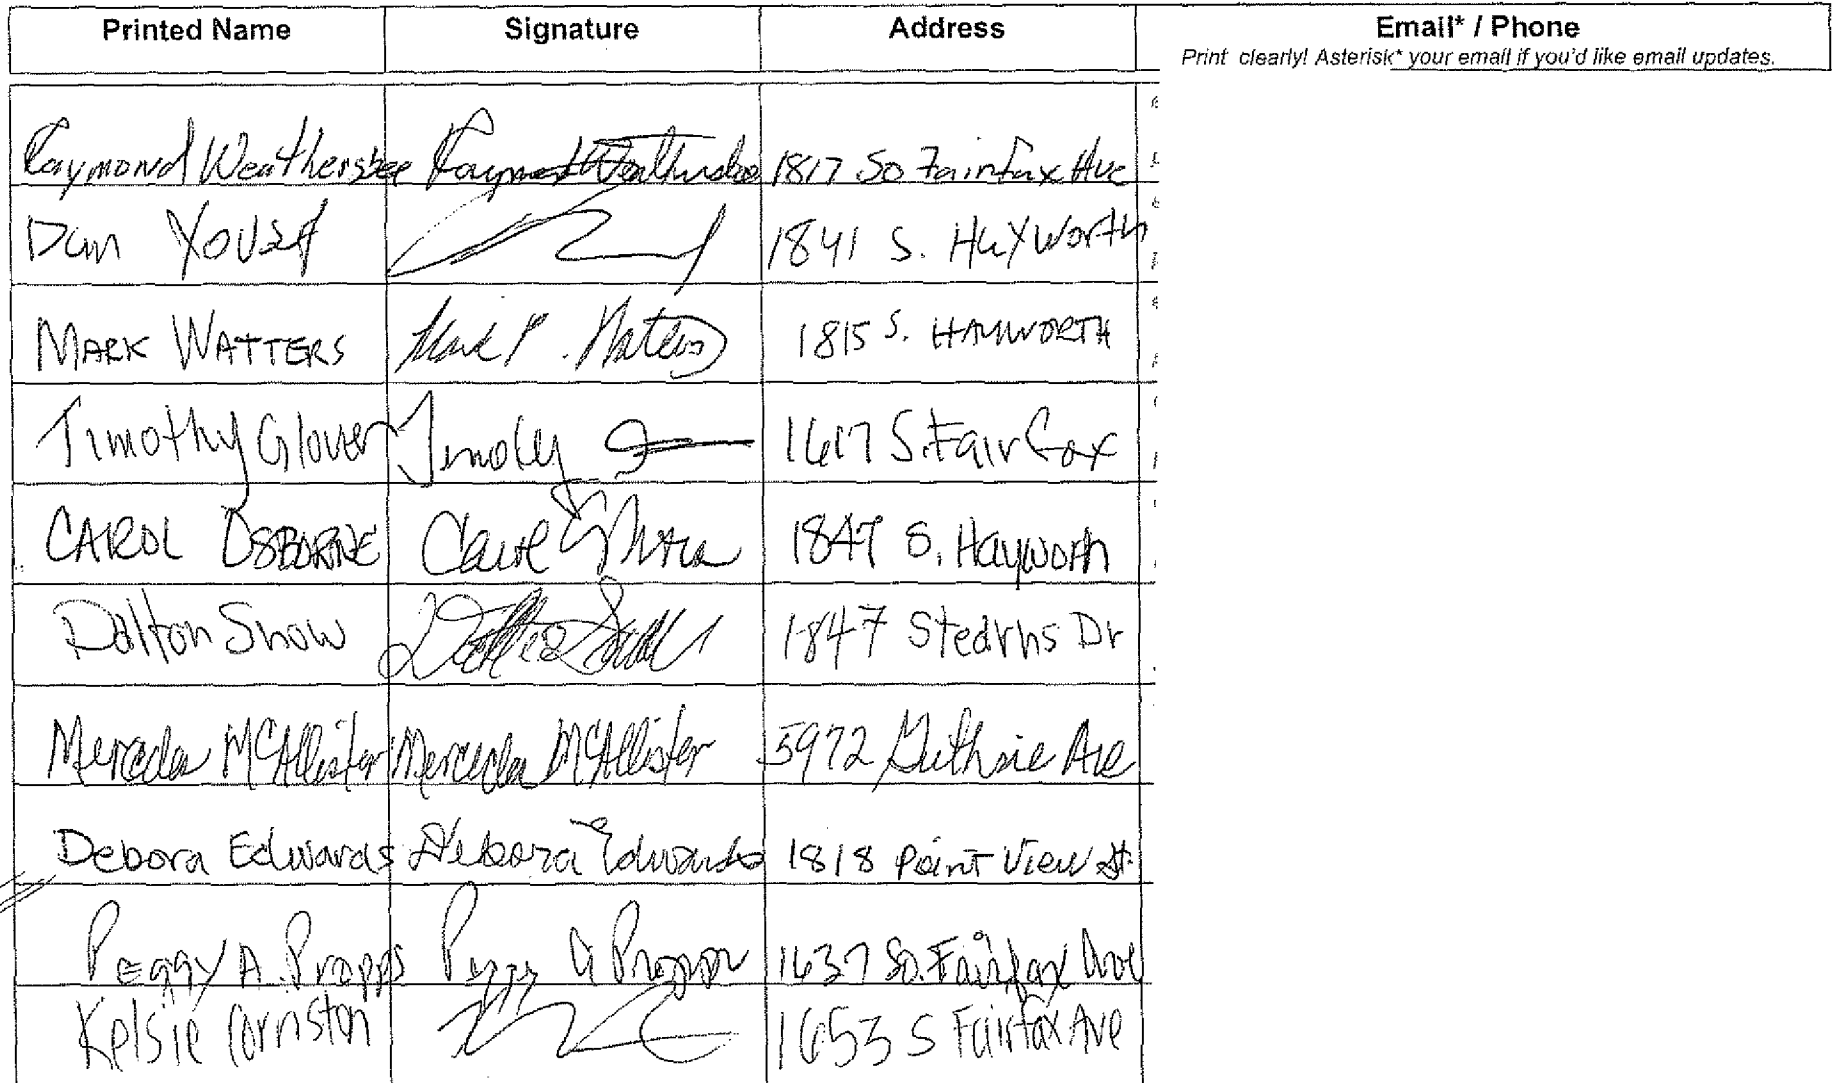 Printed Name Signature Address Email* / Phone
Print clearly! Asterisk* your email if you'd like email updates.
Raymond Weathersbee Raymond Weathersbee 1817 So Fairfax Ave
Dan Yousef 1841 S. Hayworth
MARK WATTERS Mark P. Watters 1815 S. HAYWORTH
Timothy Glover Timothy 1617 S. Fairfax
CAROL OSBORNE 1847 S. Hayworth
Dalton Snow Dalton Snow 1847 Stearns Dr
Mercedes McAllister Mercedes McAllister 5972 Guthrie Ave
Debora Edwards Debora Edwards 1818 Point View St.
Peggy A. Propps Peggy A Propps 1637 So. Fairfax Ave
Kelsie Cornston 1653 S Fairfax Ave